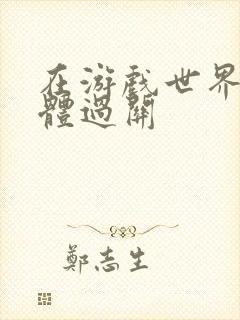 在游戲世界
體過關
鄭志生